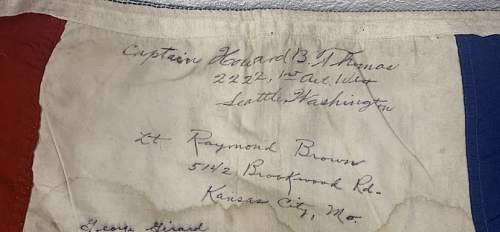 Captain Howard B. Thomas
2222, 1st Ave West
Seattle, Washington
Lt Raymond Brown
5142 Brookwood Rd.
Kansas City, Mo.
George Girard